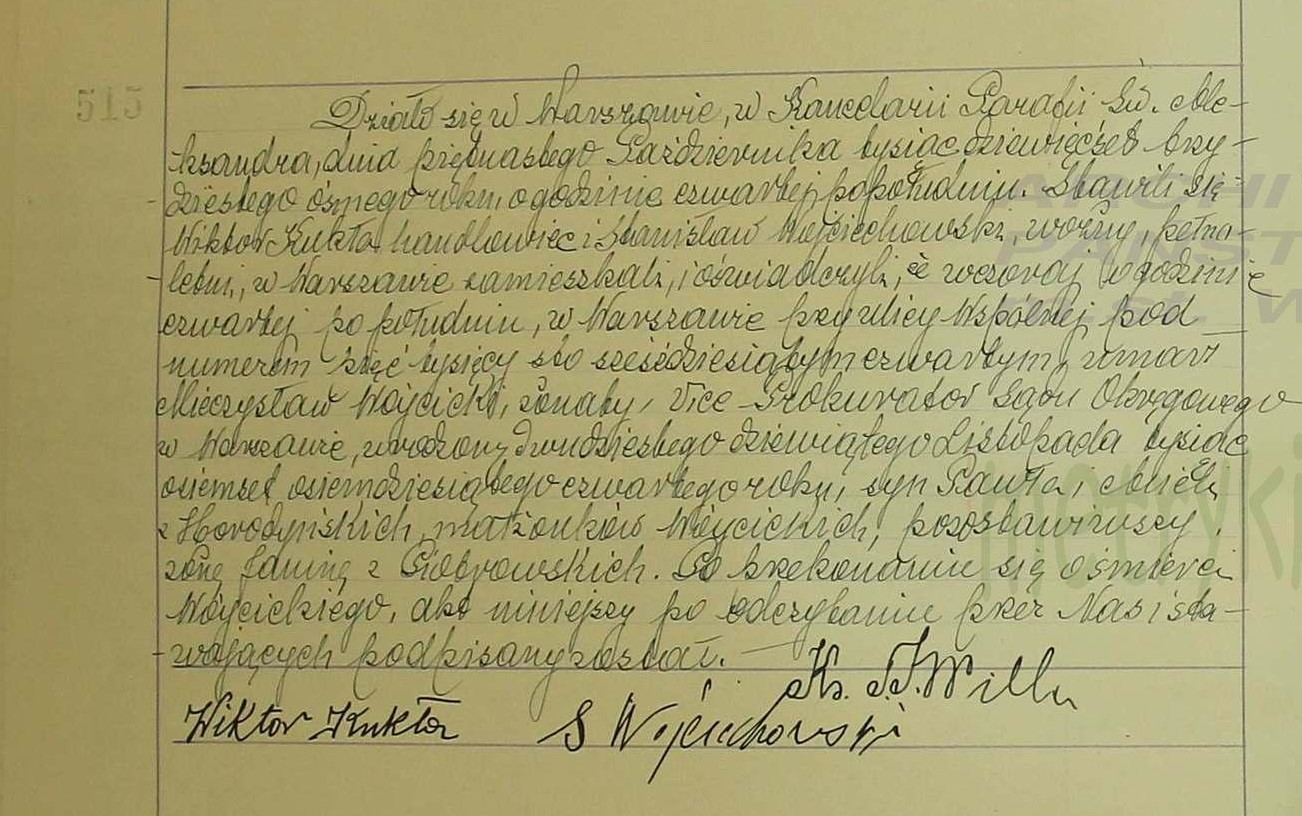 515
Działo się w Warszawie, w Kancelarii Parafii Św. Ale-
ksandra, dnia piętnastego Października tysiąc dziewięćset trzy-
dziestego ósmego roku, o godzinie czwartej popołudniu. Stawili się
Wiktor Kukła handlowiec i Stanisław Wojciechowski, woźny, pełno-
letni, w Warszawie zamieszkali, i oświadczyli, że wczoraj o godzinie
czwartej po południu, w Warszawie przy ulicy Wspólnej pod
numerem pięć tysięcy sto sześćdziesiątym czwartym, umarł
Mieczysław Wójcicki, żonaty, Vice-Prokurator Sądu Okręgowego
w Warszawie, urodzony dwudziestego dziewiątego Listopada tysiąc
osiemset osiemdziesiątego czwartego roku, syn Pawła i
z Horodyńskich małżonków Wójcickich, pozostawiwszy
żonę Janinę z Piotrowskich. Po przekonaniu się o śmierci
Wójcickiego, akt niniejszy po odczytaniu przez Nas i sta-
wających podpisany został.
Ks.
Wiktor Kukła S Wojciechowski